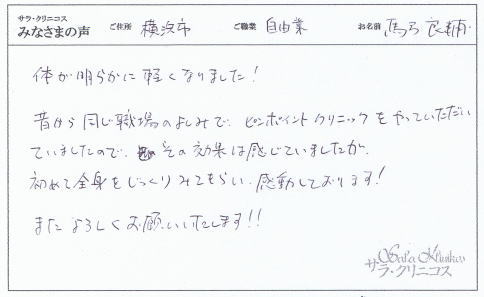 サラ・クリニコス
みなさまの声 ご住所 横浜市 ご職業 自由業 お名前 馬弓 良輔
体が明らかに軽くなりました!
昔から同じ職場のよしみで、ピンポイントクリニックをやっていただい
ていましたので、その効果は感じていましたが、
初めて全身をじっくりみてもらい、感動しております!
またよろしくお願いいたします!!
Sala Klinikos
サラ・クリニコス